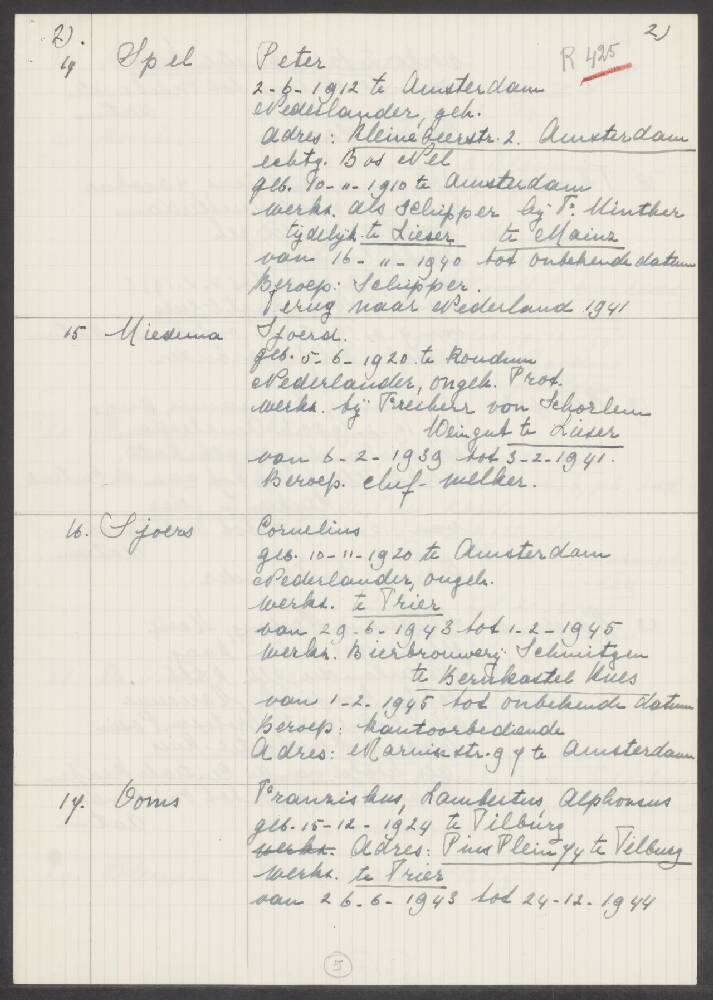 2). 2)
R 425
14 Spel Peter
2-6-1912 te Amsterdam
Nederlander, geh.
Adres: Kleine Beerstr. 2. Amsterdam
echtg. Bos Nel
geb. 10-11-1910 te Amsterdam
werkz. als schipper bij Fa. Minther
tijdelijk te Lieser te Mainz
van 16-11-1940 tot onbekende datum
Beroep: Schipper.
Terug naar Nederland 1941
15 Miedema Sjoerd.
geb. 5-6-1920 te Koudum
Nederlander, ongeh. Prot.
werkz. bij Freiherr von Schorlem
Weingut te Lieser
van 6-2-1939 tot 3-2-1941.
Beroep. chef-melker.
16. Sjoers Cornelius
geb. 10-11-1920 te Amsterdam
Nederlander, ongeh.
werkz. te Trier
van 29-6-1943 tot 1-2-1945
werkz. Bierbrouwerij Schmitgen
te Bernkastel Kues
van 1-2-1945 tot onbekende datum
Beroep: kantoorbediende
Adres: Marnixstr. 97 te Amsterdam
17. Ooms Franziskus, Lambertus, Alphonsus
geb. 15-12-1924 te Tilburg
werkz. Adres: Pius Plein 74 te Tilburg
werkz. te Trier
van 26-6-1943 tot 24-12-1944
5